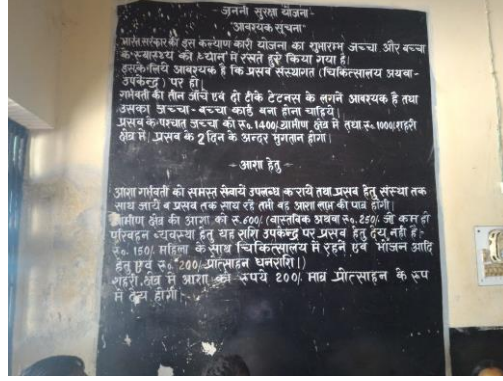 जननी सुरक्षा योजना
आवश्यक सूचना
भारत सरकार की इस कल्याण कारी योजना का शुभारम्भ जच्चा और बच्चा
के स्वास्थ्य को ध्यान में रखते हुए किया गया है।
इसके लिये आवश्यक है कि प्रसव संस्थागत (चिकित्सालय अथवा
उपकेन्द्र) पर हो।
गर्भवती की तीन जाँचे एवं दो टीके टेटनस के लगने आवश्यक है तथा
उसका जच्चा-बच्चा कार्ड बना होना चाहिये।
प्रसव के पश्चात जच्चा को रु० 1400/ ग्रामीण क्षेत्र में तथा रु० 1000/ शहरी
क्षेत्र में। प्रसव के 2 दिन के अन्दर भुगतान होगा।
- आशा हेतु -
आशा गर्भवती को समस्त सेवायें उपलब्ध कराये तथा प्रसव हेतु संस्था तक
साथ जाये व प्रसव तक साथ रहे तभी वह आशा लाभ की पात्र होगी।
ग्रामीण क्षेत्र की आशा को रु. 600/ (वास्तविक अथवा रु० 250/ जो कम हो
परिवहन व्यवस्था हेतु यह राशि उपकेन्द्र पर प्रसव हेतु देय नही है -
रु० 150/ महिला के साथ चिकित्सालय में रहने एवं भोजन आदि
हेतु एवं रु० 200/ प्रोत्साहन धनराशि।)
शहरी क्षेत्र में आशा को रुपये 200/ मात्र प्रोत्साहन के रूप
में देय होगी -